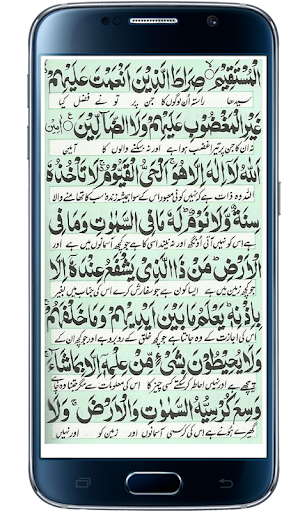 الْمُسْتَقِيْمَ ۙ صِرَاطَ الَّذِيْنَ اَنْعَمْتَ عَلَيْهِمْ
سیدھا راستہ ان لوگوں کا جن پر تو نے فضل کیا
غَيْرِ الْمَغْضُوْبِ عَلَيْهِمْ وَلَا الضَّآلِّيْنَ ۠ اٰمِيْن
نہ ان کا جن پر تیرا غضب ہوا ہے اور نہ بہکنے والوں کا
اَللّٰهُ لَآ اِلٰهَ اِلَّا هُوَ اَلْحَيُّ الْقَيُّوْمُ لَا تَاْخُذُهٗ
اللہ وہ ذات ہے کہ نہیں کوئی معبود اس کے سوا ہمیشہ زندہ سب کا تھامنے والا
سِنَةٌ وَّلَا نَوْمٌ لَهٗ مَا فِي السَّمٰوٰتِ وَمَا فِي
ہے اس کو نہیں آتی اونگھ اور نہ نیند اسی کا ہے جو کچھ آسمانوں میں ہے اور
الْاَرْضِ مَنْ ذَا الَّذِيْ يَشْفَعُ عِنْدَهٗٓ اِلَّا
جو کچھ زمین میں ہے ایسا کون ہے جو سفارش کرے اس کی جناب میں بغیر
بِاِذْنِهٖ يَعْلَمُ مَا بَيْنَ اَيْدِيْهِمْ وَمَا خَلْفَهُمْ
اس کی اجازت کے وہ جانتا ہے جو کچھ خلق کے روبرو ہے اور جو کچھ ان کے
وَلَا يُحِيْطُوْنَ بِشَيْءٍ مِّنْ عِلْمِهٖٓ اِلَّا بِمَا شَآءَ
پیچھے ہے اور نہیں احاطہ کر سکتے کسی چیز کا اس کی معلومات سے مگر جتنا وہ چاہے
وَسِعَ كُرْسِيُّهُ السَّمٰوٰتِ وَالْاَرْضَ وَلَا
گھیرے ہوئے ہے اس کی کرسی آسمانوں اور زمین کو اور نہیں